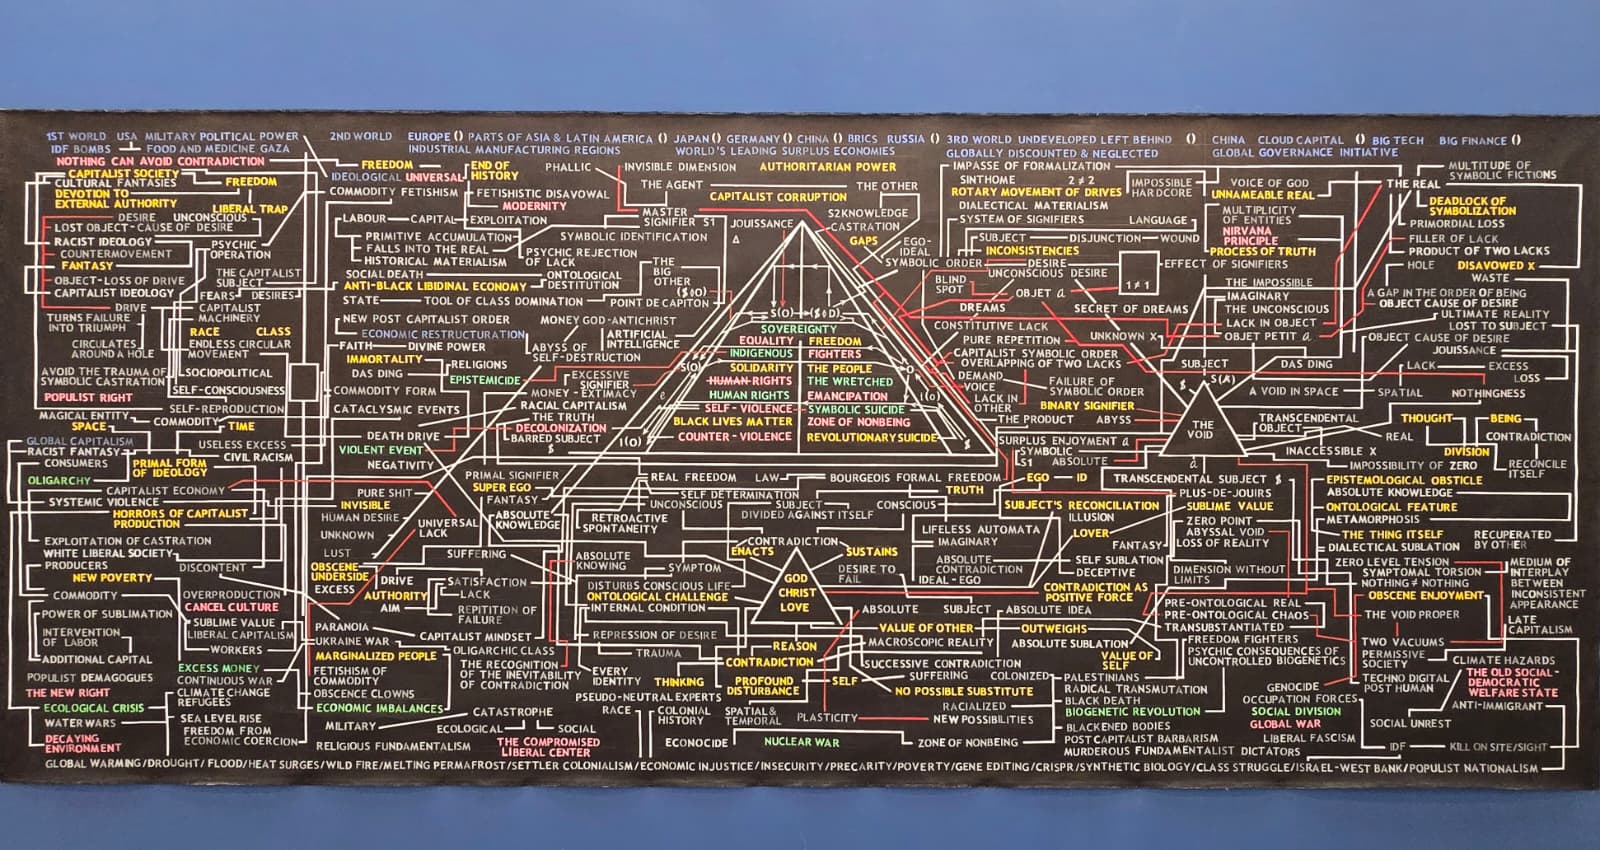 1ST WORLD USA MILITARY POLITICAL POWER
IDF BOMBS FOOD AND MEDICINE GAZA
2ND WORLD EUROPE () PARTS OF ASIA & LATIN AMERICA () JAPAN () GERMANY () CHINA () BRICS RUSSIA ()
INDUSTRIAL MANUFACTURING REGIONS WORLD'S LEADING SURPLUS ECONOMIES
3RD WORLD UNDEVELOPED LEFT BEHIND ()
GLOBALLY DISCOUNTED & NEGLECTED
CHINA CLOUD CAPITAL () BIG TECH BIG FINANCE ()
GLOBAL GOVERNANCE INITIATIVE
NOTHING CAN AVOID CONTRADICTION
CAPITALIST SOCIETY
CULTURAL FANTASIES
FREEDOM
DEVOTION TO
EXTERNAL AUTHORITY
LIBERAL TRAP
DESIRE UNCONSCIOUS
LOST OBJECT-CAUSE OF DESIRE
RACIST IDEOLOGY
COUNTERMOVEMENT
PSYCHIC
OPERATION
FANTASY
OBJECT-LOSS OF DRIVE
CAPITALIST IDEOLOGY
THE CAPITALIST
SUBJECT
FEARS DESIRES
DRIVE
CAPITALIST
MACHINERY
TURNS FAILURE
INTO TRIUMPH
RACE CLASS
ENDLESS CIRCULAR
MOVEMENT
CIRCULATES
AROUND A HOLE
AVOID THE TRAUMA OF
SYMBOLIC CASTRATION
SOCIOPOLITICAL
SELF-CONSCIOUSNESS
POPULIST RIGHT
SELF-REPRODUCTION
MAGICAL ENTITY
COMMODITY
SPACE
TIME
GLOBAL CAPITALISM
RACIST FANTASY
USELESS EXCESS
CIVIL RACISM
CONSUMERS
PRIMAL FORM
OF IDEOLOGY
OLIGARCHY
CAPITALIST ECONOMY
SYSTEMIC VIOLENCE
HORRORS OF CAPITALIST
PRODUCTION
EXPLOITATION OF CASTRATION
WHITE LIBERAL SOCIETY
PRODUCERS
DISCONTENT
NEW POVERTY
COMMODITY
OVERPRODUCTION
CANCEL CULTURE
POWER OF SUBLIMATION
SUBLIME VALUE
LIBERAL CAPITALISM
INTERVENTION
OF LABOR
WORKERS
ADDITIONAL CAPITAL
EXCESS MONEY
POPULIST DEMAGOGUES
CONTINUOUS WAR
THE NEW RIGHT
CLIMATE CHANGE
REFUGEES
ECOLOGICAL CRISIS
WATER WARS
SEA LEVEL RISE
FREEDOM FROM
ECONOMIC COERCION
DECAYING
ENVIRONMENT
FREEDOM
END OF
HISTORY
IDEOLOGICAL UNIVERSAL
COMMODITY FETISHISM
FETISHISTIC DISAVOWAL
MODERNITY
PHALLIC
INVISIBLE DIMENSION
AUTHORITARIAN POWER
THE AGENT
THE OTHER
CAPITALIST CORRUPTION
LABOUR CAPITAL EXPLOITATION
MASTER
SIGNIFIER S1
JOUISSANCE
S2KNOWLEDGE
CASTRATION
GAPS
PRIMITIVE ACCUMULATION
FALLS INTO THE REAL
HISTORICAL MATERIALISM
SYMBOLIC IDENTIFICATION
PSYCHIC REJECTION
OF LACK
EGO-
IDEAL
SYMBOLIC ORDER
SOCIAL DEATH
ANTI-BLACK LIBIDINAL ECONOMY
ONTOLOGICAL
DESTITUTION
THE
BIG
OTHER
($◊O)
STATE TOOL OF CLASS DOMINATION
POINT DE CAPITON
NEW POST CAPITALIST ORDER
MONEY GOD-ANTICHRIST
ECONOMIC RESTRUCTURATION
ARTIFICIAL
INTELLIGENCE
FAITH DIVINE POWER
ABYSS OF
SELF-DESTRUCTION
IMMORTALITY
DAS DING
RELIGIONS
EPISTEMICIDE
EXCESSIVE
SIGNIFIER
MONEY - EXTIMACY
COMMODITY FORM
RACIAL CAPITALISM
CATACLYSMIC EVENTS
THE TRUTH
DECOLONIZATION
BARRED SUBJECT
$
DEATH DRIVE
VIOLENT EVENT
NEGATIVITY
S(O) ($◊D)
SOVEREIGNTY
EQUALITY FREEDOM
INDIGENOUS FIGHTERS
SOLIDARITY THE PEOPLE
HUMAN RIGHTS THE WRETCHED
HUMAN RIGHTS EMANCIPATION
SELF-VIOLENCE SYMBOLIC SUICIDE
BLACK LIVES MATTER ZONE OF NONBEING
COUNTER-VIOLENCE REVOLUTIONARY SUICIDE
S(O)
I(O)
i(o)
$
IMPASSE OF FORMALIZATION
SINTHOME 2≠2
ROTARY MOVEMENT OF DRIVES
DIALECTICAL MATERIALISM
IMPOSSIBLE
HARDCORE
SYSTEM OF SIGNIFIERS LANGUAGE
SUBJECT DISJUNCTION WOUND
INCONSISTENCIES
DESIRE
UNCONSCIOUS DESIRE
EFFECT OF SIGNIFIERS
BLIND
SPOT
OBJET a
1≠1
DREAMS
SECRET OF DREAMS
CONSTITUTIVE LACK
PURE REPETITION
UNKNOWN X
CAPITALIST SYMBOLIC ORDER
OVERLAPPING OF TWO LACKS
DEMAND
VOICE
LACK IN
OTHER
FAILURE OF
SYMBOLIC ORDER
BINARY SIGNIFIER
THE PRODUCT ABYSS
SURPLUS ENJOYMENT a
SYMBOLIC
S1 ABSOLUTE
VOICE OF GOD
UNNAMEABLE REAL
MULTIPLICITY
OF ENTITIES
NIRVANA
PRINCIPLE
PROCESS OF TRUTH
THE IMPOSSIBLE
IMAGINARY
THE UNCONSCIOUS
LACK IN OBJECT
OBJET PETIT a
THE REAL
MULTITUDE OF
SYMBOLIC FICTIONS
DEADLOCK OF
SYMBOLIZATION
PRIMORDIAL LOSS
FILLER OF LACK
PRODUCT OF TWO LACKS
HOLE DISAVOWED X
WASTE
A GAP IN THE ORDER OF BEING
OBJECT CAUSE OF DESIRE
ULTIMATE REALITY
LOST TO SUBJECT
OBJECT CAUSE OF DESIRE
JOUISSANCE
SUBJECT
DAS DING
LACK EXCESS
LOSS
$ S(A)
A VOID IN SPACE SPATIAL NOTHINGNESS
THE
VOID
a
TRANSCENDENTAL
OBJECT
THOUGHT BEING
REAL
CONTRADICTION
INACCESSIBLE X
DIVISION
IMPOSSIBILITY OF ZERO
RECONCILE
ITSELF
TRANSCENDENTAL SUBJECT $
EPISTEMOLOGICAL OBSTICLE
ABSOLUTE KNOWLEDGE
ONTOLOGICAL FEATURE
METAMORPHOSIS
THE THING ITSELF
DIALECTICAL SUBLATION
RECUPERATED
BY OTHER
PURE SHIT
INVISIBLE
HUMAN DESIRE
UNKNOWN
LUST
UNIVERSAL
LACK
OBSCENE
UNDERSIDE
EXCESS
SUFFERING
DRIVE
AUTHORITY
AIM
SATISFACTION
LACK
REPITITION OF
FAILURE
PARANOIA
UKRAINE WAR
CAPITALIST MINDSET
OLIGARCHIC CLASS
MARGINALIZED PEOPLE
FETISHISM OF
COMMODITY
THE RECOGNITION
OF THE INEVITABILITY
OF CONTRADICTION
OBSCENCE CLOWNS
ECONOMIC IMBALANCES
MILITARY
CATASTROPHE
ECOLOGICAL SOCIAL
RELIGIOUS FUNDAMENTALISM
THE COMPROMISED
LIBERAL CENTER
PRIMAL SIGNIFIER
SUPER EGO
FANTASY
ABSOLUTE
KNOWLEDGE
REAL FREEDOM LAW BOURGEOIS FORMAL FREEDOM
TRUTH
SELF DETERMINATION
UNCONSCIOUS SUBJECT CONSCIOUS
DIVIDED AGAINST ITSELF
RETROACTIVE
SPONTANEITY
CONTRADICTION
ENACTS SUSTAINS
ABSOLUTE
KNOWING
SYMPTOM
DESIRE TO
FAIL
DISTURBS CONSCIOUS LIFE
ONTOLOGICAL CHALLENGE
INTERNAL CONDITION
GOD
CHRIST
LOVE
REPRESSION OF DESIRE
TRAUMA
REASON
CONTRADICTION
EVERY
IDENTITY
THINKING
PROFOUND
DISTURBANCE
SELF
PSEUDO-NEUTRAL EXPERTS
RACE
COLONIAL
HISTORY
SPATIAL &
TEMPORAL
PLASTICITY NEW POSSIBILITIES
ECONOCIDE
NUCLEAR WAR
ZONE OF NONBEING
EGO ID
SUBJECT'S RECONCILIATION
ILLUSION
LIFELESS AUTOMATA
IMAGINARY
LOVER
FANTASY
ABSOLUTE
CONTRADICTION
IDEAL-EGO
SELF SUBLATION
DECEPTIVE
CONTRADICTION AS
POSITIVE FORCE
ABSOLUTE SUBJECT ABSOLUTE IDEA
VALUE OF OTHER OUTWEIGHS
MACROSCOPIC REALITY ABSOLUTE SUBLATION
VALUE OF
SELF
SUCCESSIVE CONTRADICTION
SUFFERING COLONIZED
NO POSSIBLE SUBSTITUTE
RACIALIZED
PLUS-DE-JOUIRS
SUBLIME VALUE
ZERO POINT
ABYSSAL VOID
LOSS OF REALITY
DIMENSION WITHOUT
LIMITS
PRE-ONTOLOGICAL REAL
PRE-ONTOLOGICAL CHAOS
TRANSUBSTANTIATED
FREEDOM FIGHTERS
PSYCHIC CONSEQUENCES OF
UNCONTROLLED BIOGENETICS
PALESTINIANS
RADICAL TRANSMUTATION
BLACK DEATH
BIOGENETIC REVOLUTION
BLACKENED BODIES
POST CAPITALIST BARBARISM
MURDEROUS FUNDAMENTALIST DICTATORS
GENOCIDE
OCCUPATION FORCES
SOCIAL DIVISION
GLOBAL WAR
LIBERAL FASCISM
ZERO LEVEL TENSION
SYMPTOMAL TORSION
NOTHING ≠ NOTHING
OBSCENE ENJOYMENT
MEDIUM OF
INTERPLAY
BETWEEN
INCONSISTENT
APPEARANCE
THE VOID PROPER
LATE
CAPITALISM
TWO VACUUMS
PERMISSIVE
SOCIETY
TECHNO DIGITAL
POST HUMAN
CLIMATE HAZARDS
THE OLD SOCIAL-
DEMOCRATIC
WELFARE STATE
ANTI-IMMIGRANT
SOCIAL UNREST
IDF KILL ON SITE/SIGHT
GLOBAL WARMING/DROUGHT/FLOOD/HEAT SURGES/WILD FIRE/MELTING PERMAFROST/SETTLER COLONIALISM/ECONOMIC INJUSTICE/INSECURITY/PRECARITY/POVERTY/GENE EDITING/CRISPR/SYNTHETIC BIOLOGY/CLASS STRUGGLE/ISRAEL-WEST BANK/POPULIST NATIONALISM